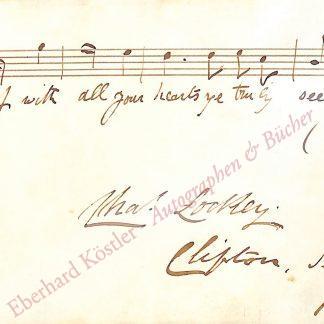 if with all your hearts ye truly see
Chas. Lockey.
Clifton,
Eberhard Köstler Autographen & Bücher